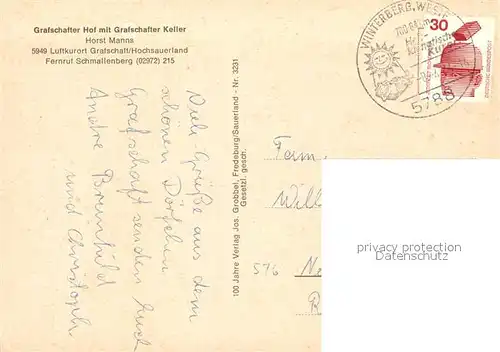 Grafschafter Hof mit Grafschafter Keller
Horst Manns
5949 Luftkurort Grafschaft/Hochsauerland
Fernruf Schmallenberg (02972) 215
Viele Grüße aus dem
schönen Dörfchen
Grafschaft senden Euch
Andre Brunhild
und Christoph
100 Jahre Verlag Jos. Grobbel, Fredeburg/Sauerland - Nr. 3231
Gesetzl. gesch.
WINTERBERG, WESTF
5788
30
DEUTSCHE BUNDESPOST
Fam.
Will
576 Ne
R
privacy protection
Datenschutz